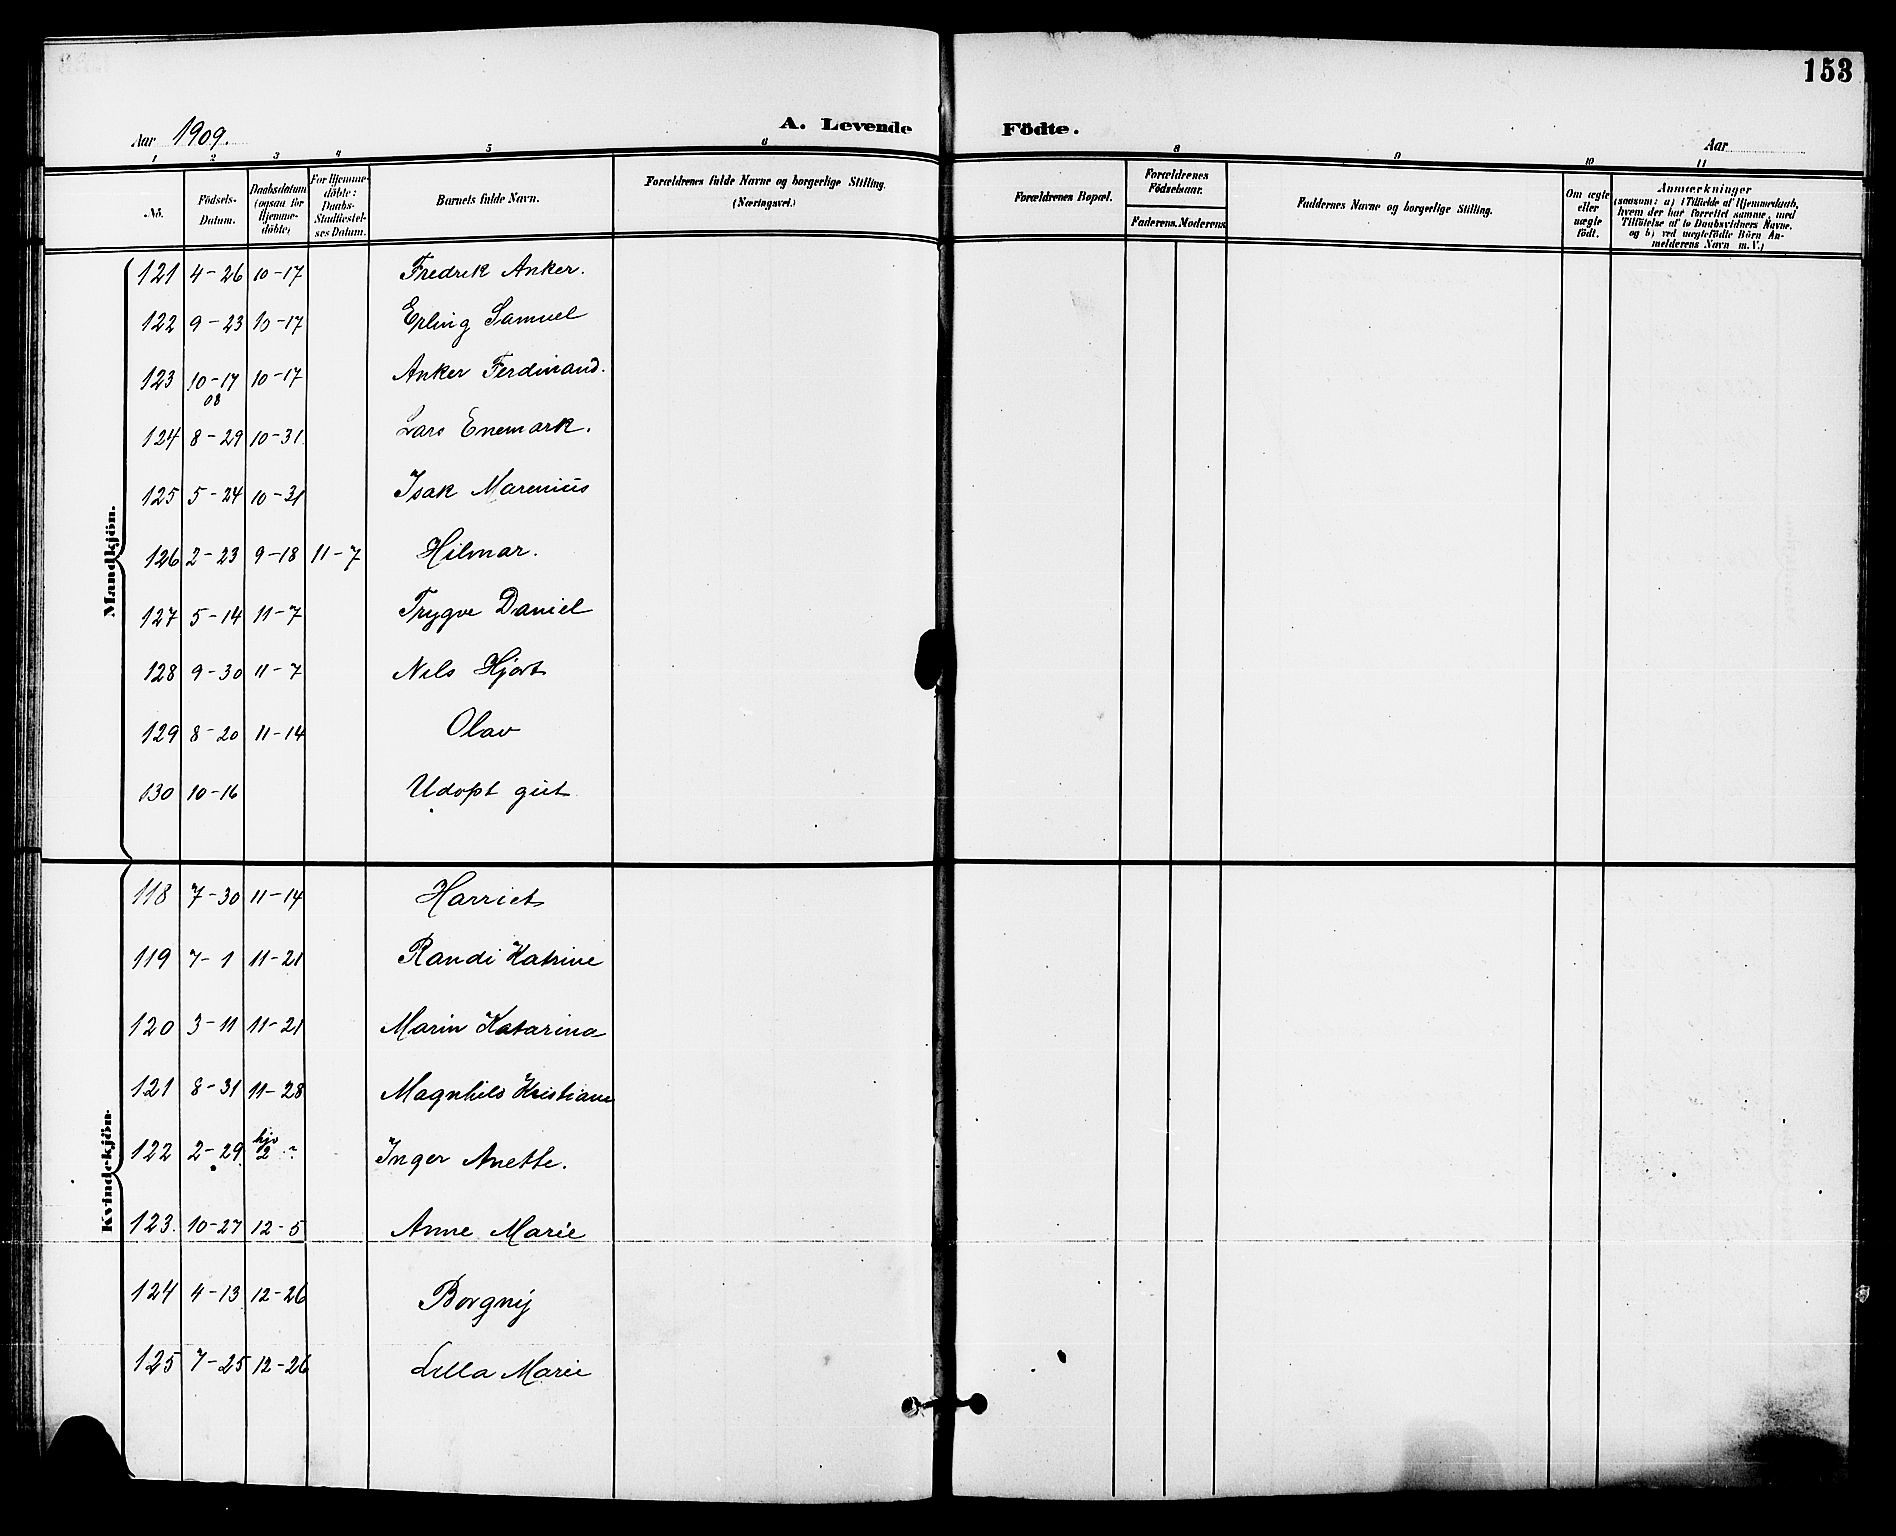 153
Aar 1909.
A. Levende Födte.
Aar
1 2 3 4 5 6 8 9 10 11
Nö.
Födsels-Datum.
Daabsdatum (ogsaa for Hjemme-döbte)
For Hjemme-döbte: Daabs-Stadfæstel-ses Datum.
Barnets fulde Navn.
Forældrenes fulde Navne og borgerlige Stilling. (Næringsvei.)
Forældrenes Bopæl.
Forældrenes Födselsaar.
Faderens. Moderens.
Faddernes Navne og borgerlige Stilling.
Om ægte eller uægte födt.
Anmærkninger
(saasom: a) i Tilfælde af Hjemmedaab,
hvem der har forrettet samme, med
Tilföielse af to Daabsvidners Navne,
og b) ved uægtefödte Börn An-
melderens Navn m. V.)
Mandkjön.
121 4-26 10-17 Fredrik Anker.
122 9-23 10-17 Erling Samuel
123 10-17 10-17 Anker Ferdinand.
08
124 8-29 10-31 Lars Enemark.
125 5-24 10-31 Isak Marenius
126 2-23 9-18 11-7 Hilmar.
127 5-14 11-7 Trygve Daniel
128 9-30 11-7 Nils Hjort
129 8-20 11-14 Olav
130 10-16 Udøpt gut
Kvindekjön.
118 7-30 11-14 Harriet
119 7-1 11-21 Randi Katrine
120 3-11 11-21 Marin Katarina
121 8-31 11-28 Magnhild Kristiane
122 2-29 2-? Inger Anette.
123. 10-27 12-5 Anne Marie
124 4-13 12-26 Borgny
125 7-25 12-26 Lilla Marie